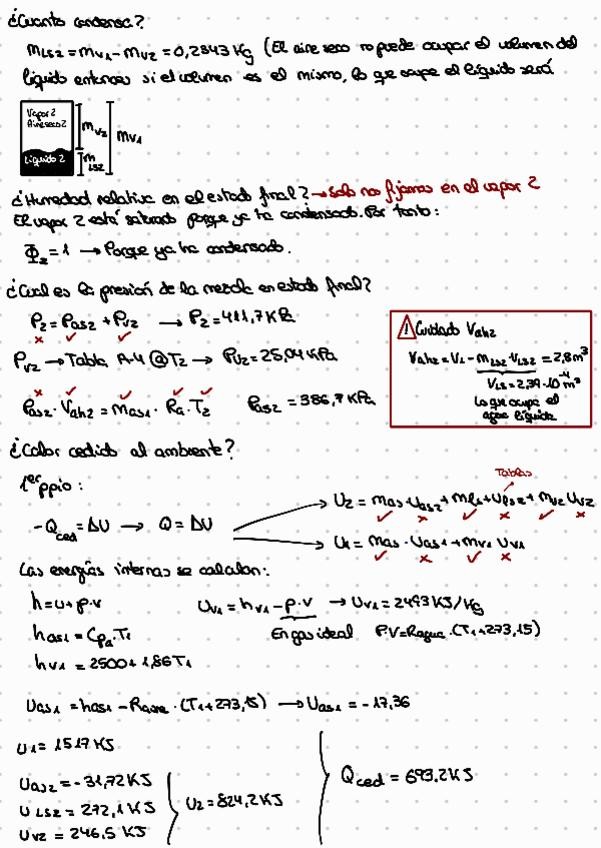 ¿Cuanto condensa?
mLS2 = mV1 - mV2 = 0,2343 Kg (El aire seco no puede ocupar el volumen del
líquido entonces si el volumen es el mismo, lo que ocupe el líquido será
Vapor 2
Aire seco 2
Líquido 2
mV2
mLS2
mV1
¿Humedad relativa en el estado final? → Solo nos fijamos en el vapor 2
El vapor 2 está saturado porque ya ha condensado. Por tanto:
Φ2 = 1 → Porque ya ha condensado.
¿Cual es la presión de la mezcla en estado final?
P2 = Pas2 + Pv2 → P2 = 411,7 KPa
Pv2 → Tabla A-4 @T2 → Pv2 = 25,04 KPa
Pas2 · Vah2 = mas1 · Ra · T2 Pas2 = 386,7 KPa
! Cuidado Vah2
Vah2 = V1 - mLS2 · vLS2 = 2,8 m³
VLS = 2,39·10⁻⁴ m³
Lo que ocupa el
agua líquida
¿Calor cedido al ambiente?
1er ppio:
Tablas
-Qced = ΔU → Q = ΔU
U2 = mas·uas2 + mls·uls2 + mv2 uv2
U1 = mas · uas1 + mv1 uv1
Las energías internas se calculan:
h = u + p·v
uv1 = hv1 - p·v → uv1 = 2493 KJ/Kg
has1 = Cpa·T1
En gas ideal P·V = Ragua·(T1+273,15)
hv1 = 2500 + 1,86T1
uas1 = has1 - Raire · (T1+273,15) → uas1 = -17,36
U1 = 1517 KJ
Uas2 = -31,72 KJ
ULS2 = 272,1 KJ
UV2 = 246,5 KJ
U2 = 824,2 KJ
Qced = 693,2 KJ